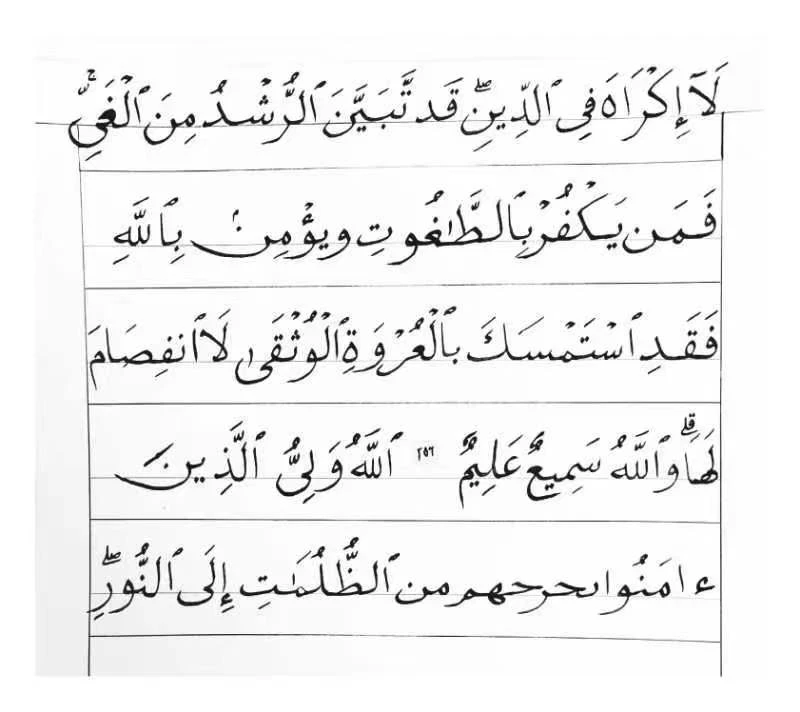 لَآ إِكْرَاهَ فِي ٱلدِّينِۖ قَد تَّبَيَّنَ ٱلرُّشْدُ مِنَ ٱلْغَيِّۚ
فَمَن يَكْفُرْ بِٱلطَّٰغُوتِ ويؤْمِنۢ بِٱللَّهِ
فَقَدِ ٱسْتَمْسَكَ بٱلْعُرْوَةِ ٱلْوُثْقَىٰ لَا ٱنفِصَامَ
لَهَاۗ وَٱللَّهُ سَمِيعٌ عَلِيمٌ ٢٥٦ ٱللَّهُ وَلِىُّ ٱلَّذِينَ
ءامَنُوا ىحرحهم من ٱلظُّلُمَٰتِ إِلَى ٱلنُّورِۖ